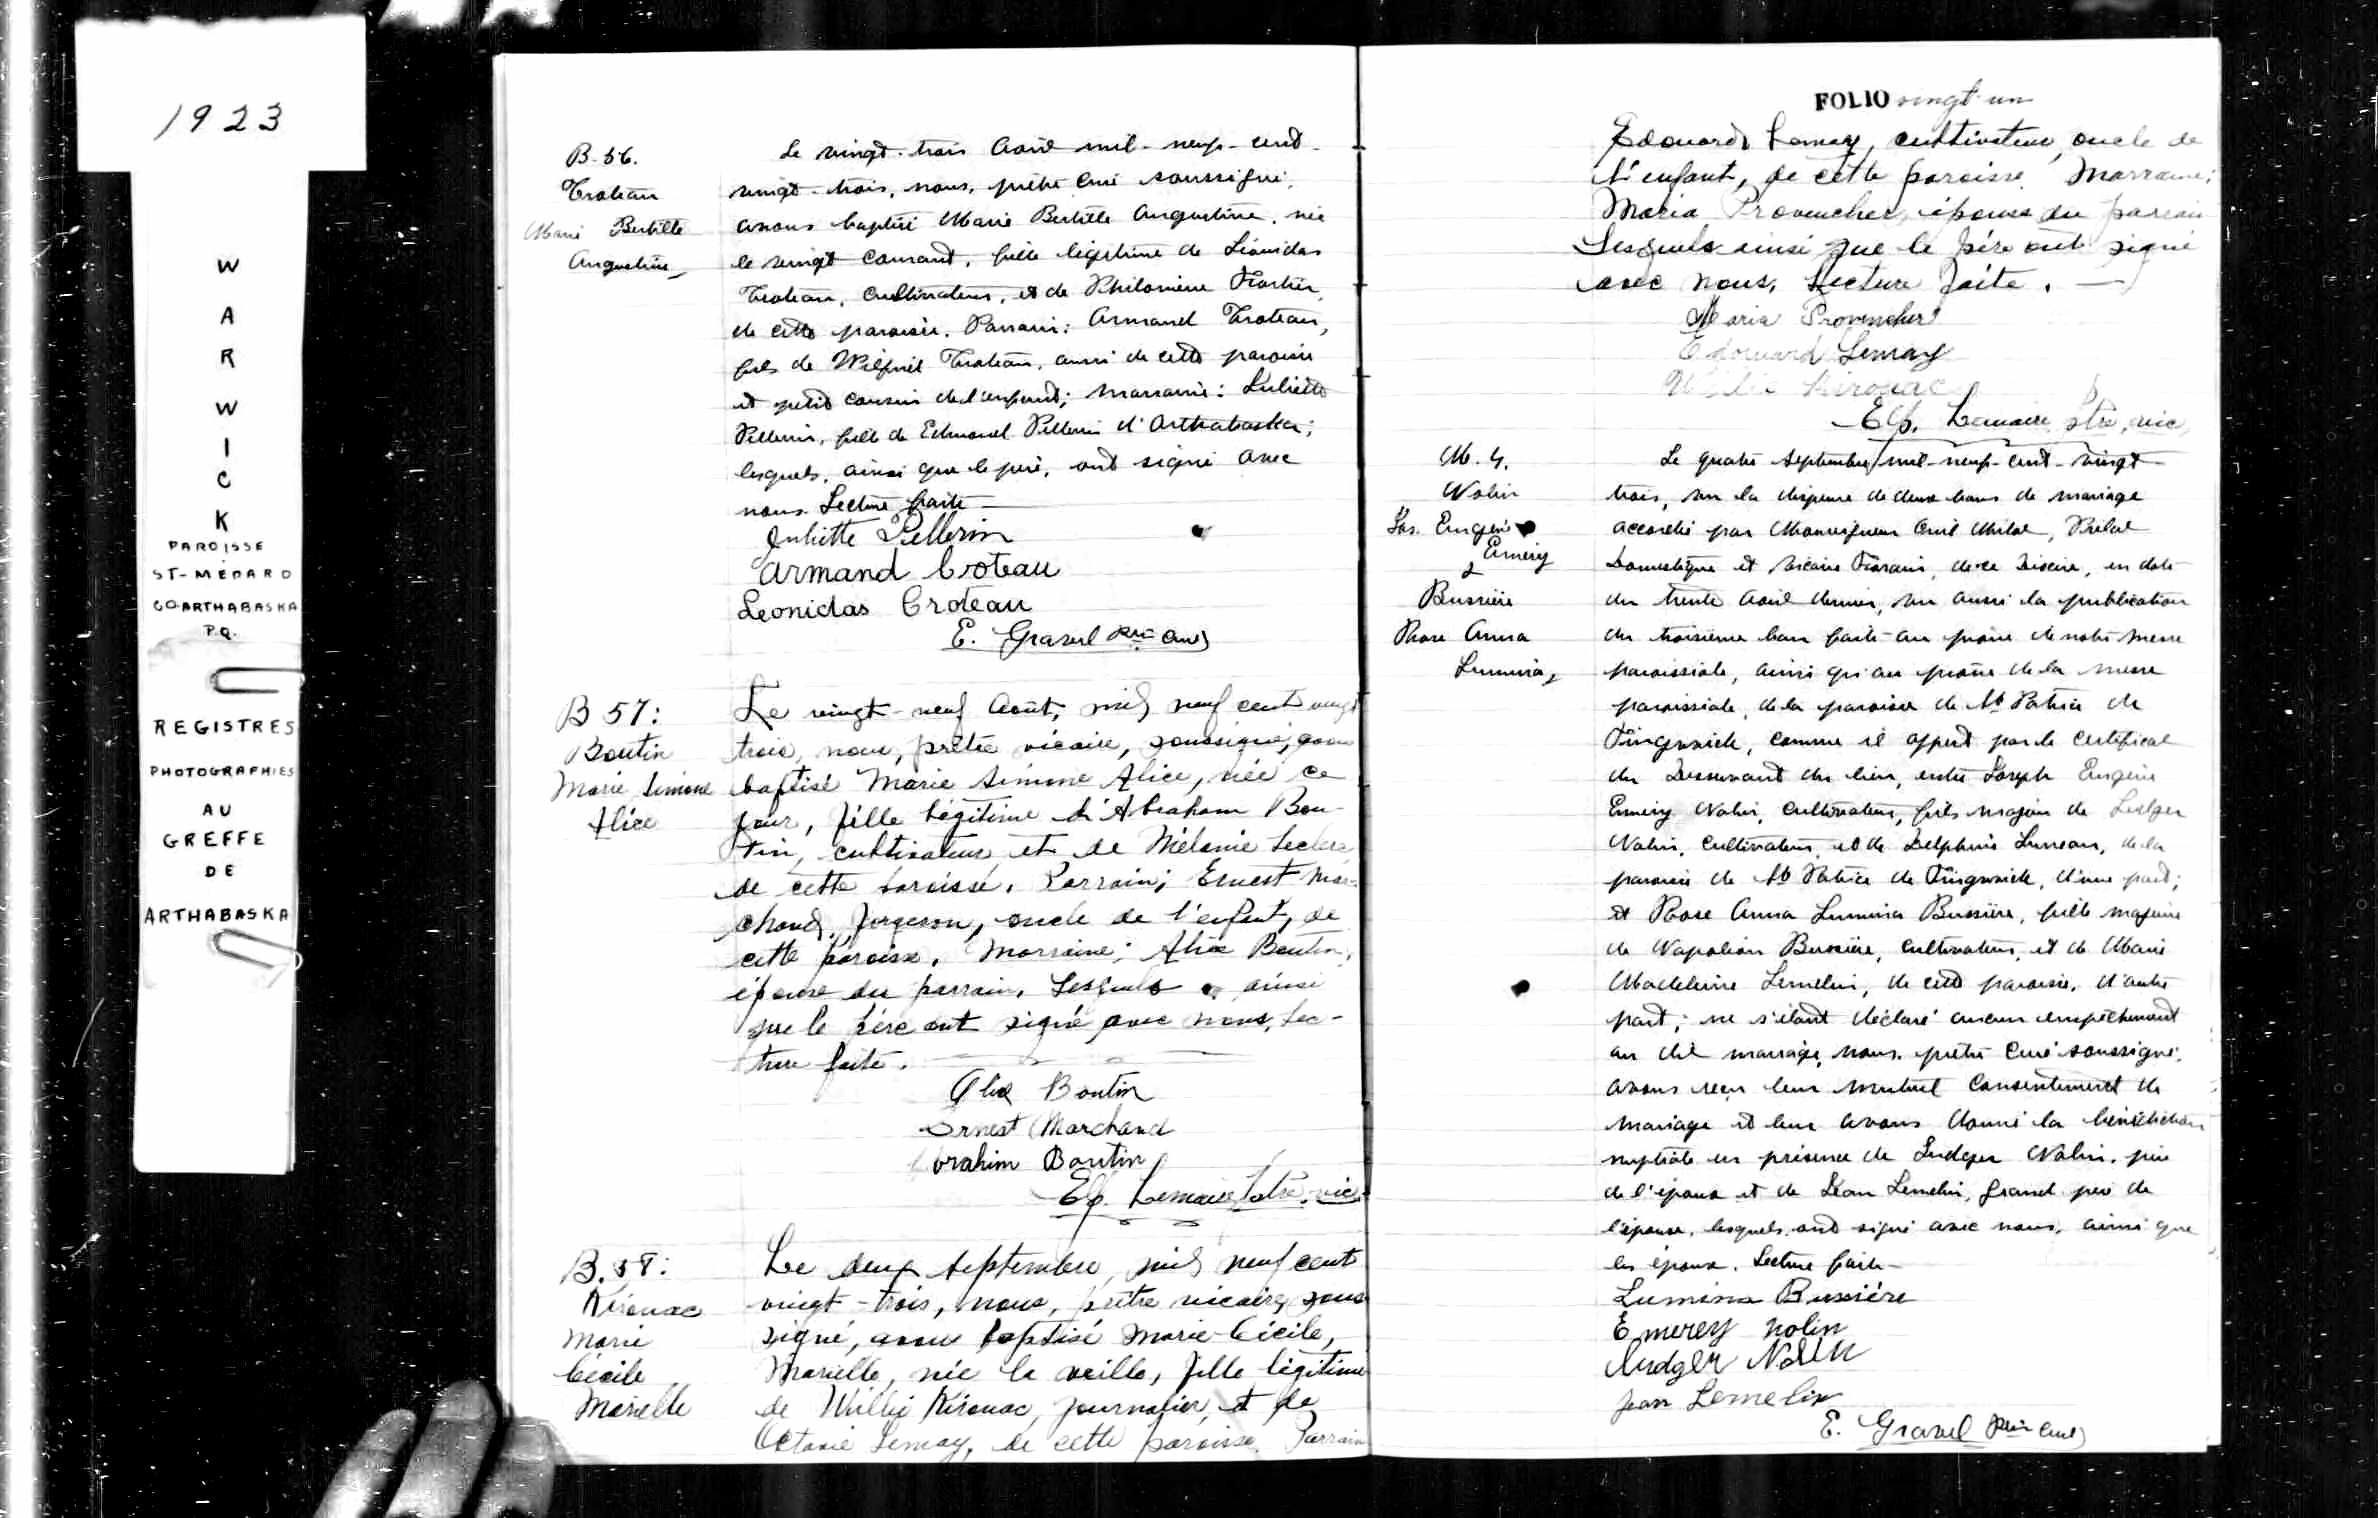 1923
W
A
R
W
I
C
K
PAROISSE
ST-MÉDARD
CO-ARTHABASKA
P.Q.
REGISTRES
PHOTOGRAPHIES
AU
GREFFE
DE
ARTHABASKA
B-56.
Croteau
Marie Bertille
Augustine
Le vingt-trois Août mil-neuf-cent-
vingt-trois, nous, prêtre curé soussigné,
avons baptisé Marie Bertille Augustine, née
le vingt courant, fille légitime de Léonidas
Croteau, cultivateur, et de Philomène Fortier,
de cette paroisse. Parrain: Armand Croteau,
fils de Wilfrid Croteau, aussi de cette paroisse
et petit cousin de l'enfant; marraine: Juliette
Pellerin, fille de Edmond Pellerin d'Arthabaska;
lesquels, ainsi que le père, ont signé avec
nous. Lecture faite
Juliette Pellerin
Armand Croteau
Leonidas Croteau
E. Gravel Ptre Curé
B 57:
Boutin
Marie Simone
Alice
Le vingt-neuf Août, mil neuf cent vingt
trois, nous, prêtre vicaire, soussigné, avons
baptisé Marie Simone Alice, née ce
jour, fille légitime d'Abraham Bou-
tin, cultivateur et de Mélanie Leclerc
de cette paroisse. Parrain; Ernest Mar-
chand, forgeron, oncle de l'enfant, de
cette paroisse. Marraine; Alice Boutin,
épouse du parrain, Lesquels ainsi
que le père ont signé avec nous, lec-
ture faite.
Alice Boutin
Ernest Marchand
Abrahim Boutin
Elp. Lemaire, Ptre, vic
B. 58:
Kirouac
Marie
Cécile
Marielle
Le deux Septembre, mil neuf cent
vingt-trois, nous, prêtre vicaire sous
signé, avons baptisé Marie-Cécile,
Marielle, née la veille, fille légitime
de Willie Kirouac, journalier, et de
Octavie Lemay, de cette paroisse. Parrain
FOLIO vingt-un
Edouard Lemay, cultivateur, oncle de
l'enfant, de cette paroisse. Marraine;
Maria Provencher, épouse du parrain
Lesquels ainsi que le père ont signé
avec nous. Lecture faite.
Maria Provencher
Edouard Lemay
Willie Kirouac
Elp. Lemaire, ptre, vic
M. 4.
Nolin
Jos. Eugène
Emery
&
Bussière
Rose Anna
Lumina
Le quatre Septembre mil-neuf-cent-vingt-
trois, vu la dispense de deux bans de mariage
accordée par Monseigneur Milot, Prélat
Domestique et Vicaire Forain, de ce Diocèse, en date
du trente Août dernier, vu aussi la publication
du troisième ban faite au prône de notre messe
paroissiale, ainsi qu'au prône de la messe
paroissiale, de la paroisse de St Patrice de
Tingwick, comme il appert par le certificat
du Desservant du lieu, entre Joseph Eugène
Emery Nolin, cultivateur, fils majeur de Ludger
Nolin, cultivateur, et de Delphine Luneau, de la
paroisse de St Patrice de Tingwick, d'une part;
et Rose Anna Lumina Bussière, fille majeure
de Napoléon Bussière, cultivateur, et de Marie
Madeleine Lemelin, de cette paroisse, d'autre
part; ne s'étant déclaré aucun empêchement
au dit mariage, nous, prêtre curé soussigné,
avons reçu leur mutuel consentement de
mariage et leur avons donné la bénédiction
nuptiale en présence de Ludger Nolin, père
de l'époux et de Jean Lemelin, grand père de
l'épouse, lesquels ont signé avec nous, ainsi que
les époux. Lecture faite-
Lumina Bussière
Emerey Nolin
Ludger Nolin
Jean Lemelin
E. Gravel Ptre Curé